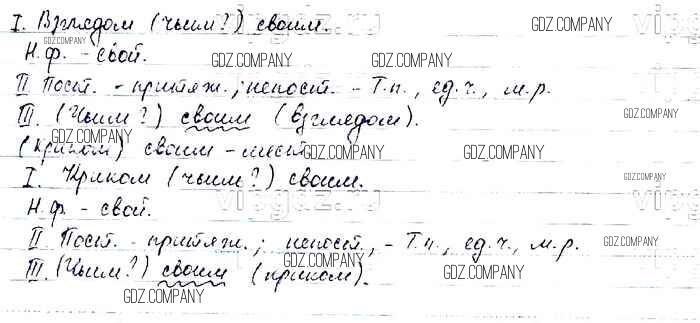 I. Взглядом (чьим?) своим.
Н.ф. - свой.
II Пост. - притяж.; непост. - Т.п., ед.ч., м.р.
III. (Чьим?) своим (взглядом).
(криком) своим - мест.
I. Криком (чьим?) своим.
Н.ф. - свой.
II Пост. - притяж.; непост., - Т.п., ед.ч., м.р.
III. (Чьим?) своим (криком).
GDZ.COMPANY
GDZ.COMPANY
GDZ.COMPANY
GDZ.COMPANY
GDZ.COMPANY
GDZ.COMPANY
GDZ.COMPANY
GDZ.COMPANY
GDZ.COMPANY
GDZ.COMPANY
GDZ.COMPANY
GDZ.COMPANY
GDZ.COMPANY
GDZ.COMPANY